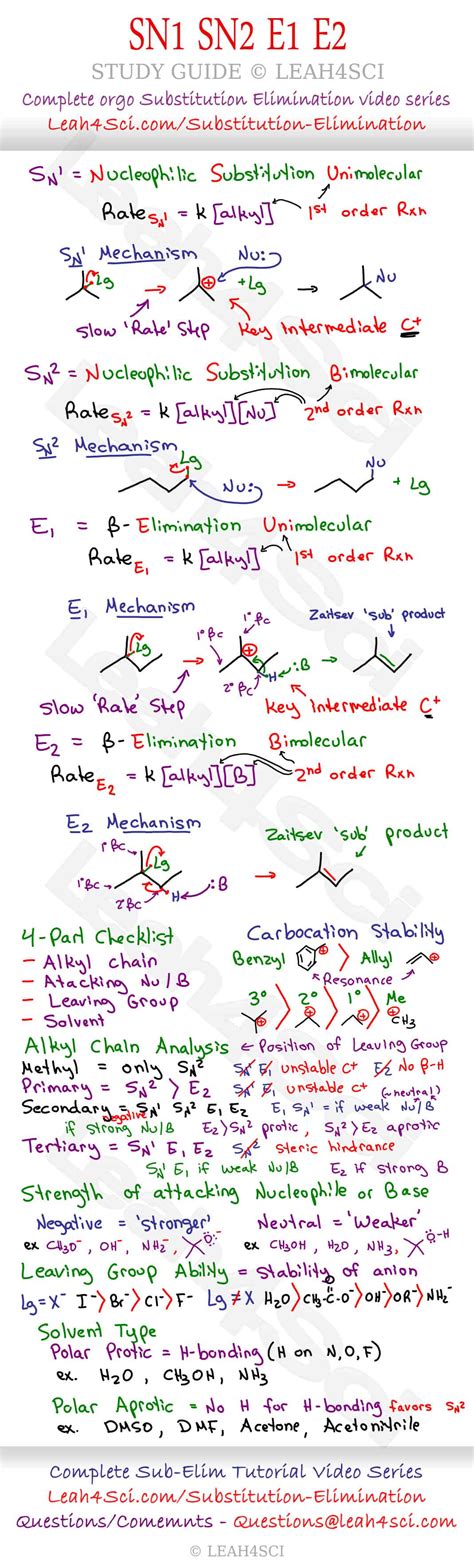 SN1 SN2 E1 E2
STUDY GUIDE © LEAH4SCI
Complete orgo Substitution Elimination video series
Leah4Sci.com/Substitution-Elimination
SN1 = Nucleophilic Substitution Unimolecular
Rate SN1 = k [alkyl] 1st order Rxn
SN1 Mechanism Nu:
Lg + +Lg Nu
Slow 'Rate' Step Key Intermediate C+
SN2 = Nucleophilic Substitution Bimolecular
Rate SN2 = k [alkyl][Nu] 2nd order Rxn
SN2 Mechanism
Lg Nu: Nu + Lg
E1 = β-Elimination Unimolecular
Rate E1 = k [alkyl] 1st order Rxn
E1 Mechanism 1° βc Zaitsev 'sub' product
Lg 1° βc + H :B
2° βc
Slow 'Rate' Step Key Intermediate C+
E2 = β-Elimination Bimolecular
Rate E2 = k [alkyl][B] 2nd order Rxn
E2 Mechanism Zaitsev 'sub' product
1° βc Lg
1° βc H :B
2° βc
4-Part Checklist Carbocation Stability
- Alkyl chain Benzyl + > Allyl +
- Atacking Nu/B Resonance
- Leaving Group 3° > 2° > 1° > Me
- Solvent + + + + CH3
Alkyl Chain Analysis ← Position of Leaving Group
Methyl = only SN2 SN1 E1 unstable C+ E2 No β-H
Primary = SN2 > E2 SN1 E1 unstable C+ (~neutral)
Secondary = SN1 SN2 E1 E2 E1 SN1 = if weak Nu/B
if strong negative Nu/B E2>SN2 protic, SN2>E2 aprotic
Tertiary = SN1 E1 E2 SN2 steric hindrance
SN1 E1 if weak Nu/B E2 if strong B
Strength of attacking Nucleophile or Base
Negative = 'stronger' Neutral = 'Weaker'
ex CH3O-, OH-, NH2-, O- ex CH3OH, H2O, NH3, O-H
Leaving Group Ability = Stability of anion
Lg=X- I->Br->Cl->F- Lg≠X H2O>CH3-C-O->OH->OR->NH2-
Solvent Type
Polar Protic = H-bonding (H on N,O,F)
ex. H2O, CH3OH, NH3
Polar Aprotic = No H for H-bonding favors SN2
ex. DMSO, DMF, Acetone, Acetonitrile
Complete Sub-Elim Tutorial Video Series
Leah4Sci.com/Substitution-Elimination
Questions/Comemnts - Questions@leah4sci.com
© LEAH4SCI